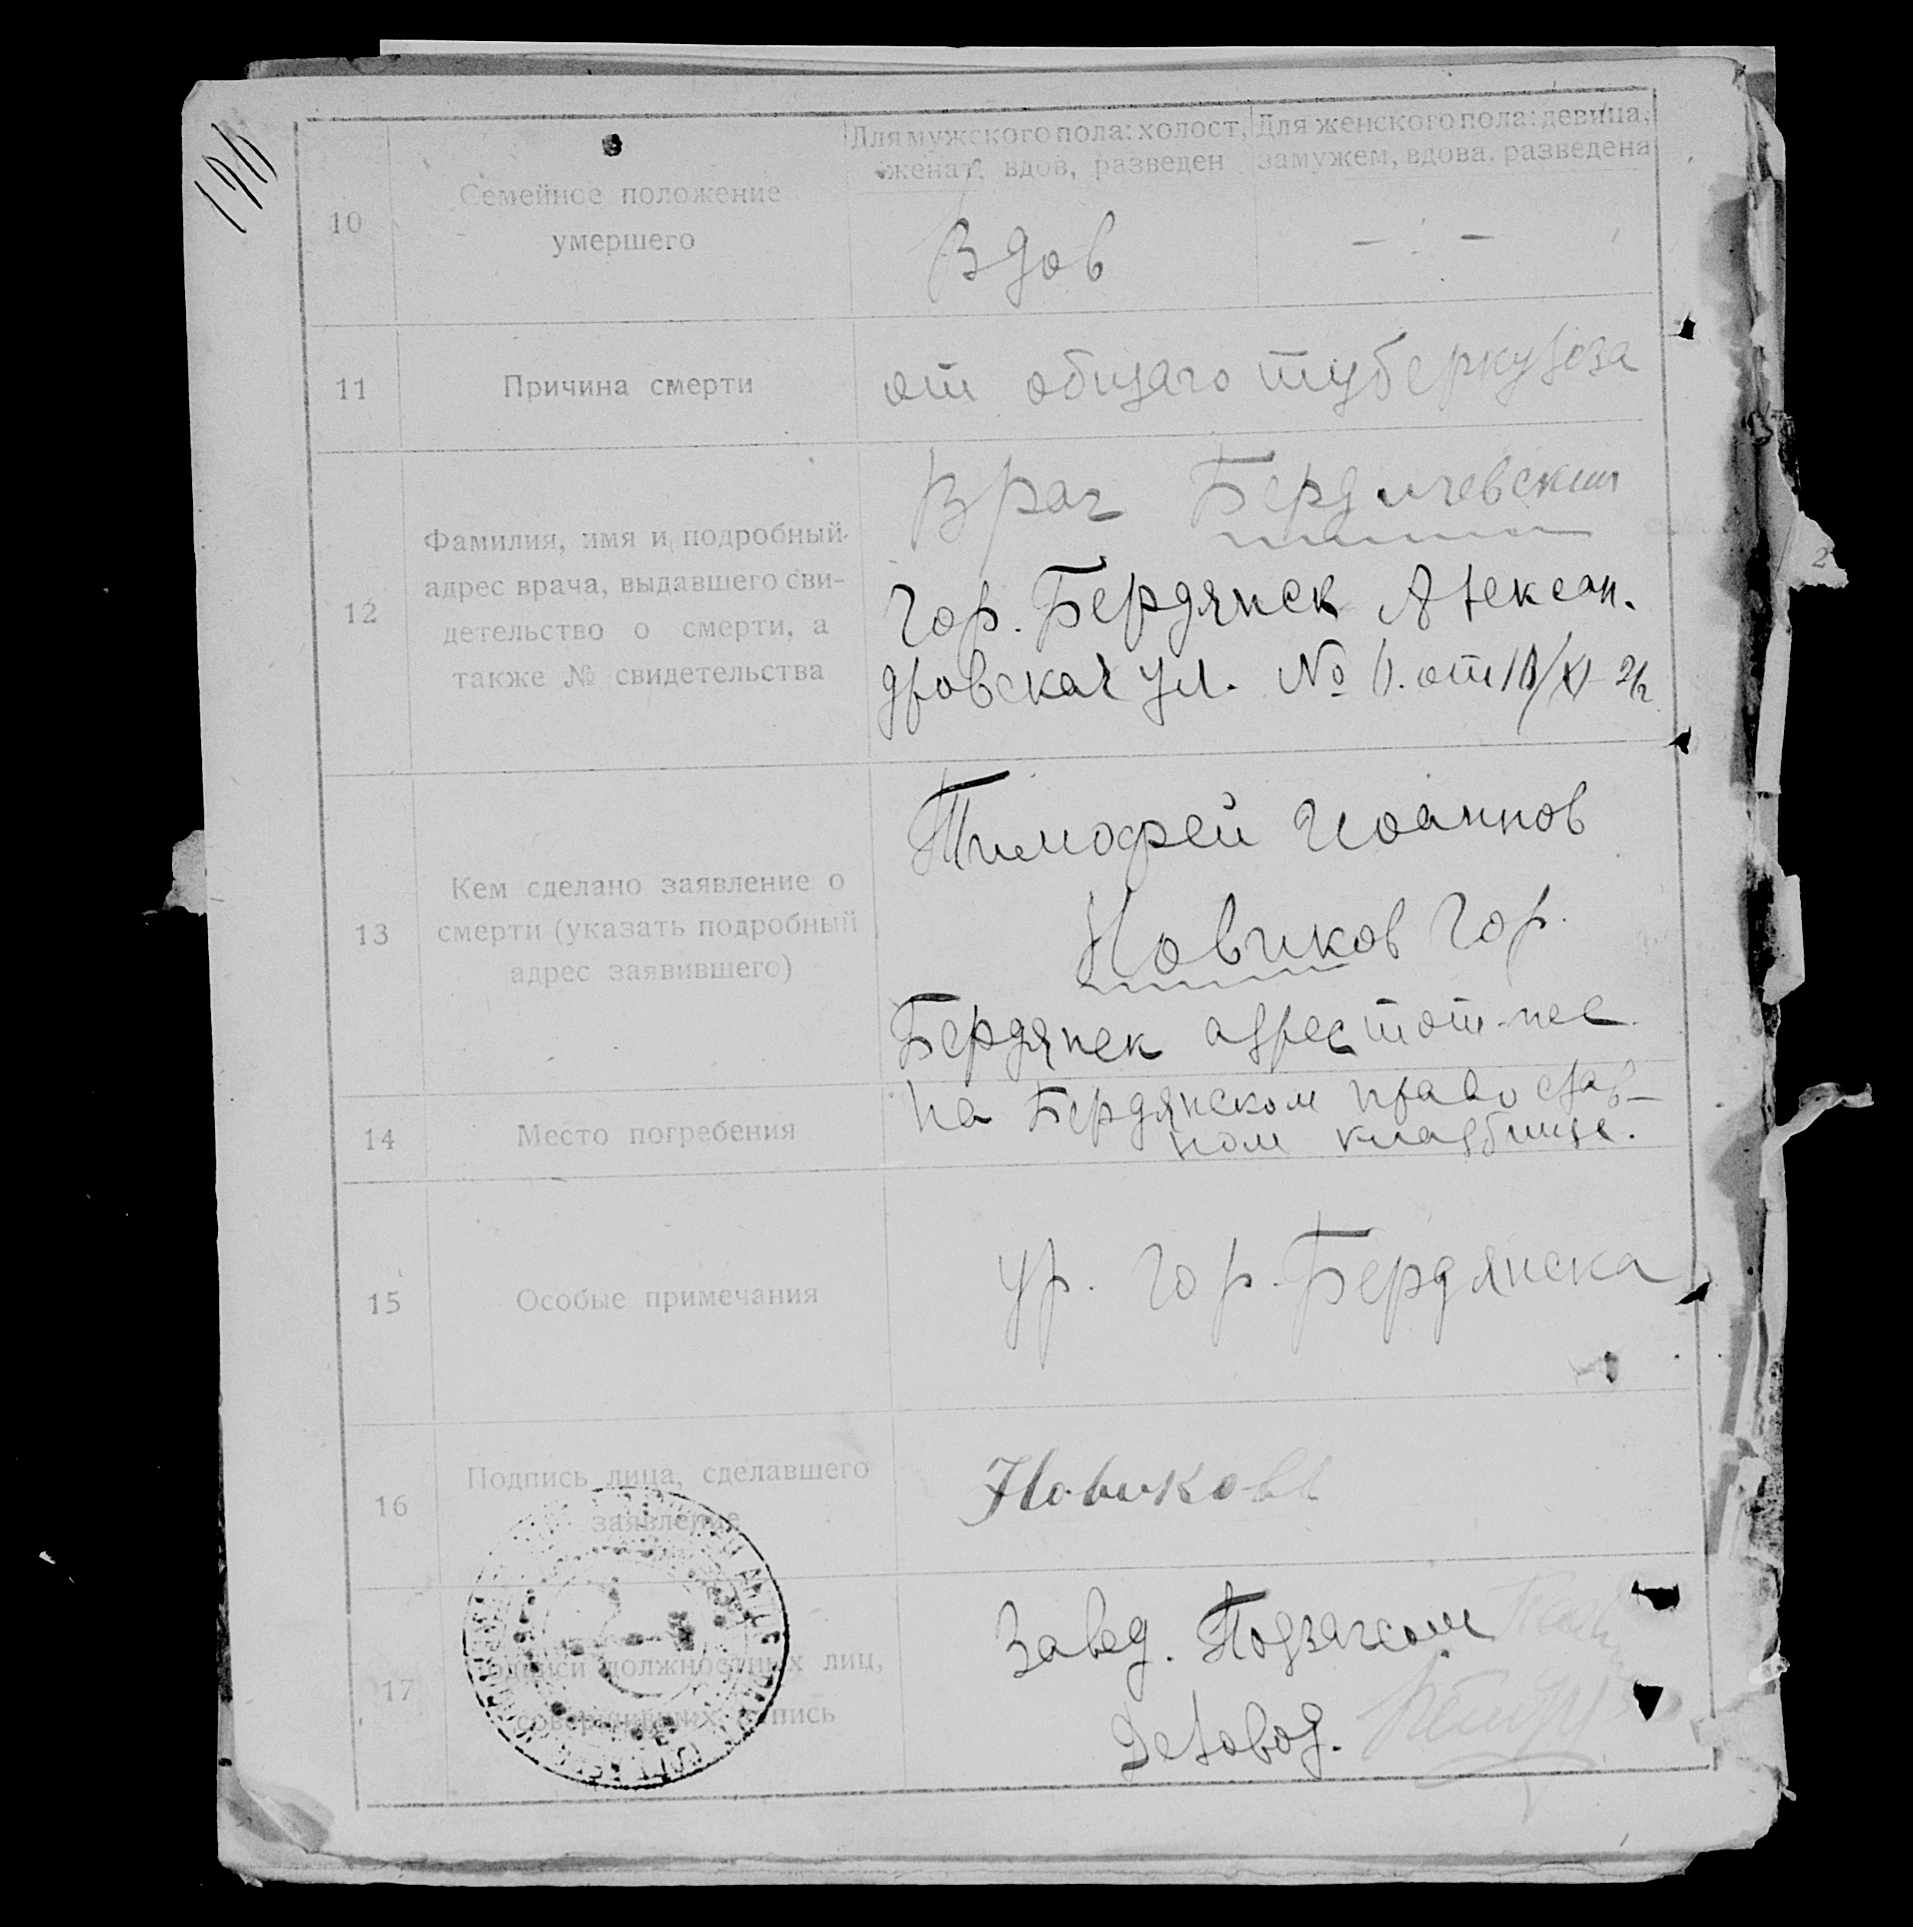 Для мужского пола: холост, женат, вдов, разведен
Для женского пола: девица, замужем, вдова, разведена
10
Семейное положение
умершего
Вдов
— —
11
Причина смерти
от общаго туберкулоза
12
Фамилия, имя и подробный
адрес врача, выдавшего сви-
детельство о смерти, а
также № свидетельства
Врач Бердичевский
Гор. Бердянск Алексан.
дровская ул. №
13
Кем сделано заявление о
смерти (указать подробный
адрес заявившего)
Тимофей Иоаннов
Новиков Гор.
Бердянск адрес тот-же
14
Место погребения
На Бердянском православ-
ном кладбище.
15
Особые примечания
ур. Гор. Бердянска
16
Подпись лица, сделавшего
заявление
Новиковъ
17
Подписи должностных лиц,
совершивших запись
Завед. Подзагсом
Деловод.